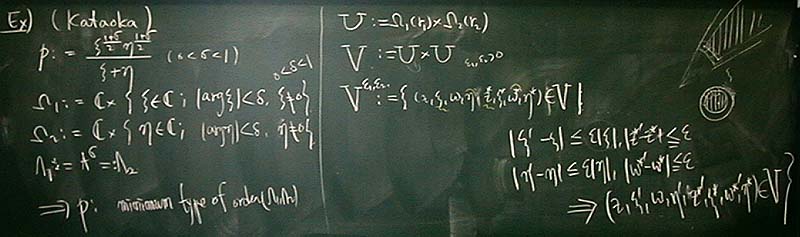 Ex) (Kataoka)
p := ξ^{(1+δ)/2} η^{(1+δ)/2} / (ξ+η) (0<δ<1)
0<δ<1
Ω₁ := ℂ × { ξ∈ℂ; |arg ξ|<δ, ξ≠0 }
Ω₂ := ℂ × { η∈ℂ; |arg η|<δ, η≠0 }
Λ₁ := t^δ =: Λ₂
⇒ p: minimum type of order (Λ₁,Λ₂)
U := Ω₁(r₁) × Ω₂(r₂)
V := U × U ε₁,ε₂>0
V^{ε₁,ε₂} := { (z, ξ, w, η, z*, ξ*, w*, η*) ∈ V |
|ξ' - ξ| ≤ ε|ξ|, |z* - z| ≤ ε
|η' - η| ≤ ε|η|, |w* - w| ≤ ε
⇒ (z, ξ', w, η', z*, ξ*, w*, η*) ∈ V }